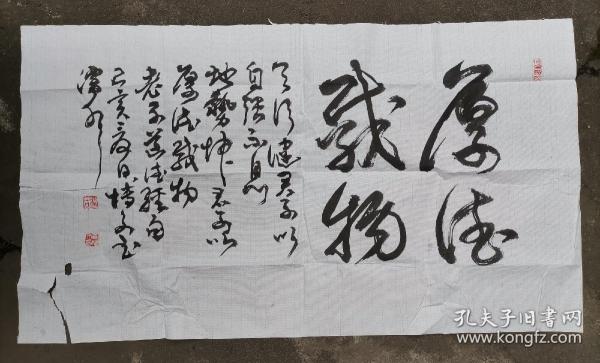 厚德
载物
天行健君子以
自强不息
地势坤君子以
厚德载物
老子道德经句
己亥夏月
孔夫子旧书网
www.kongfz.com